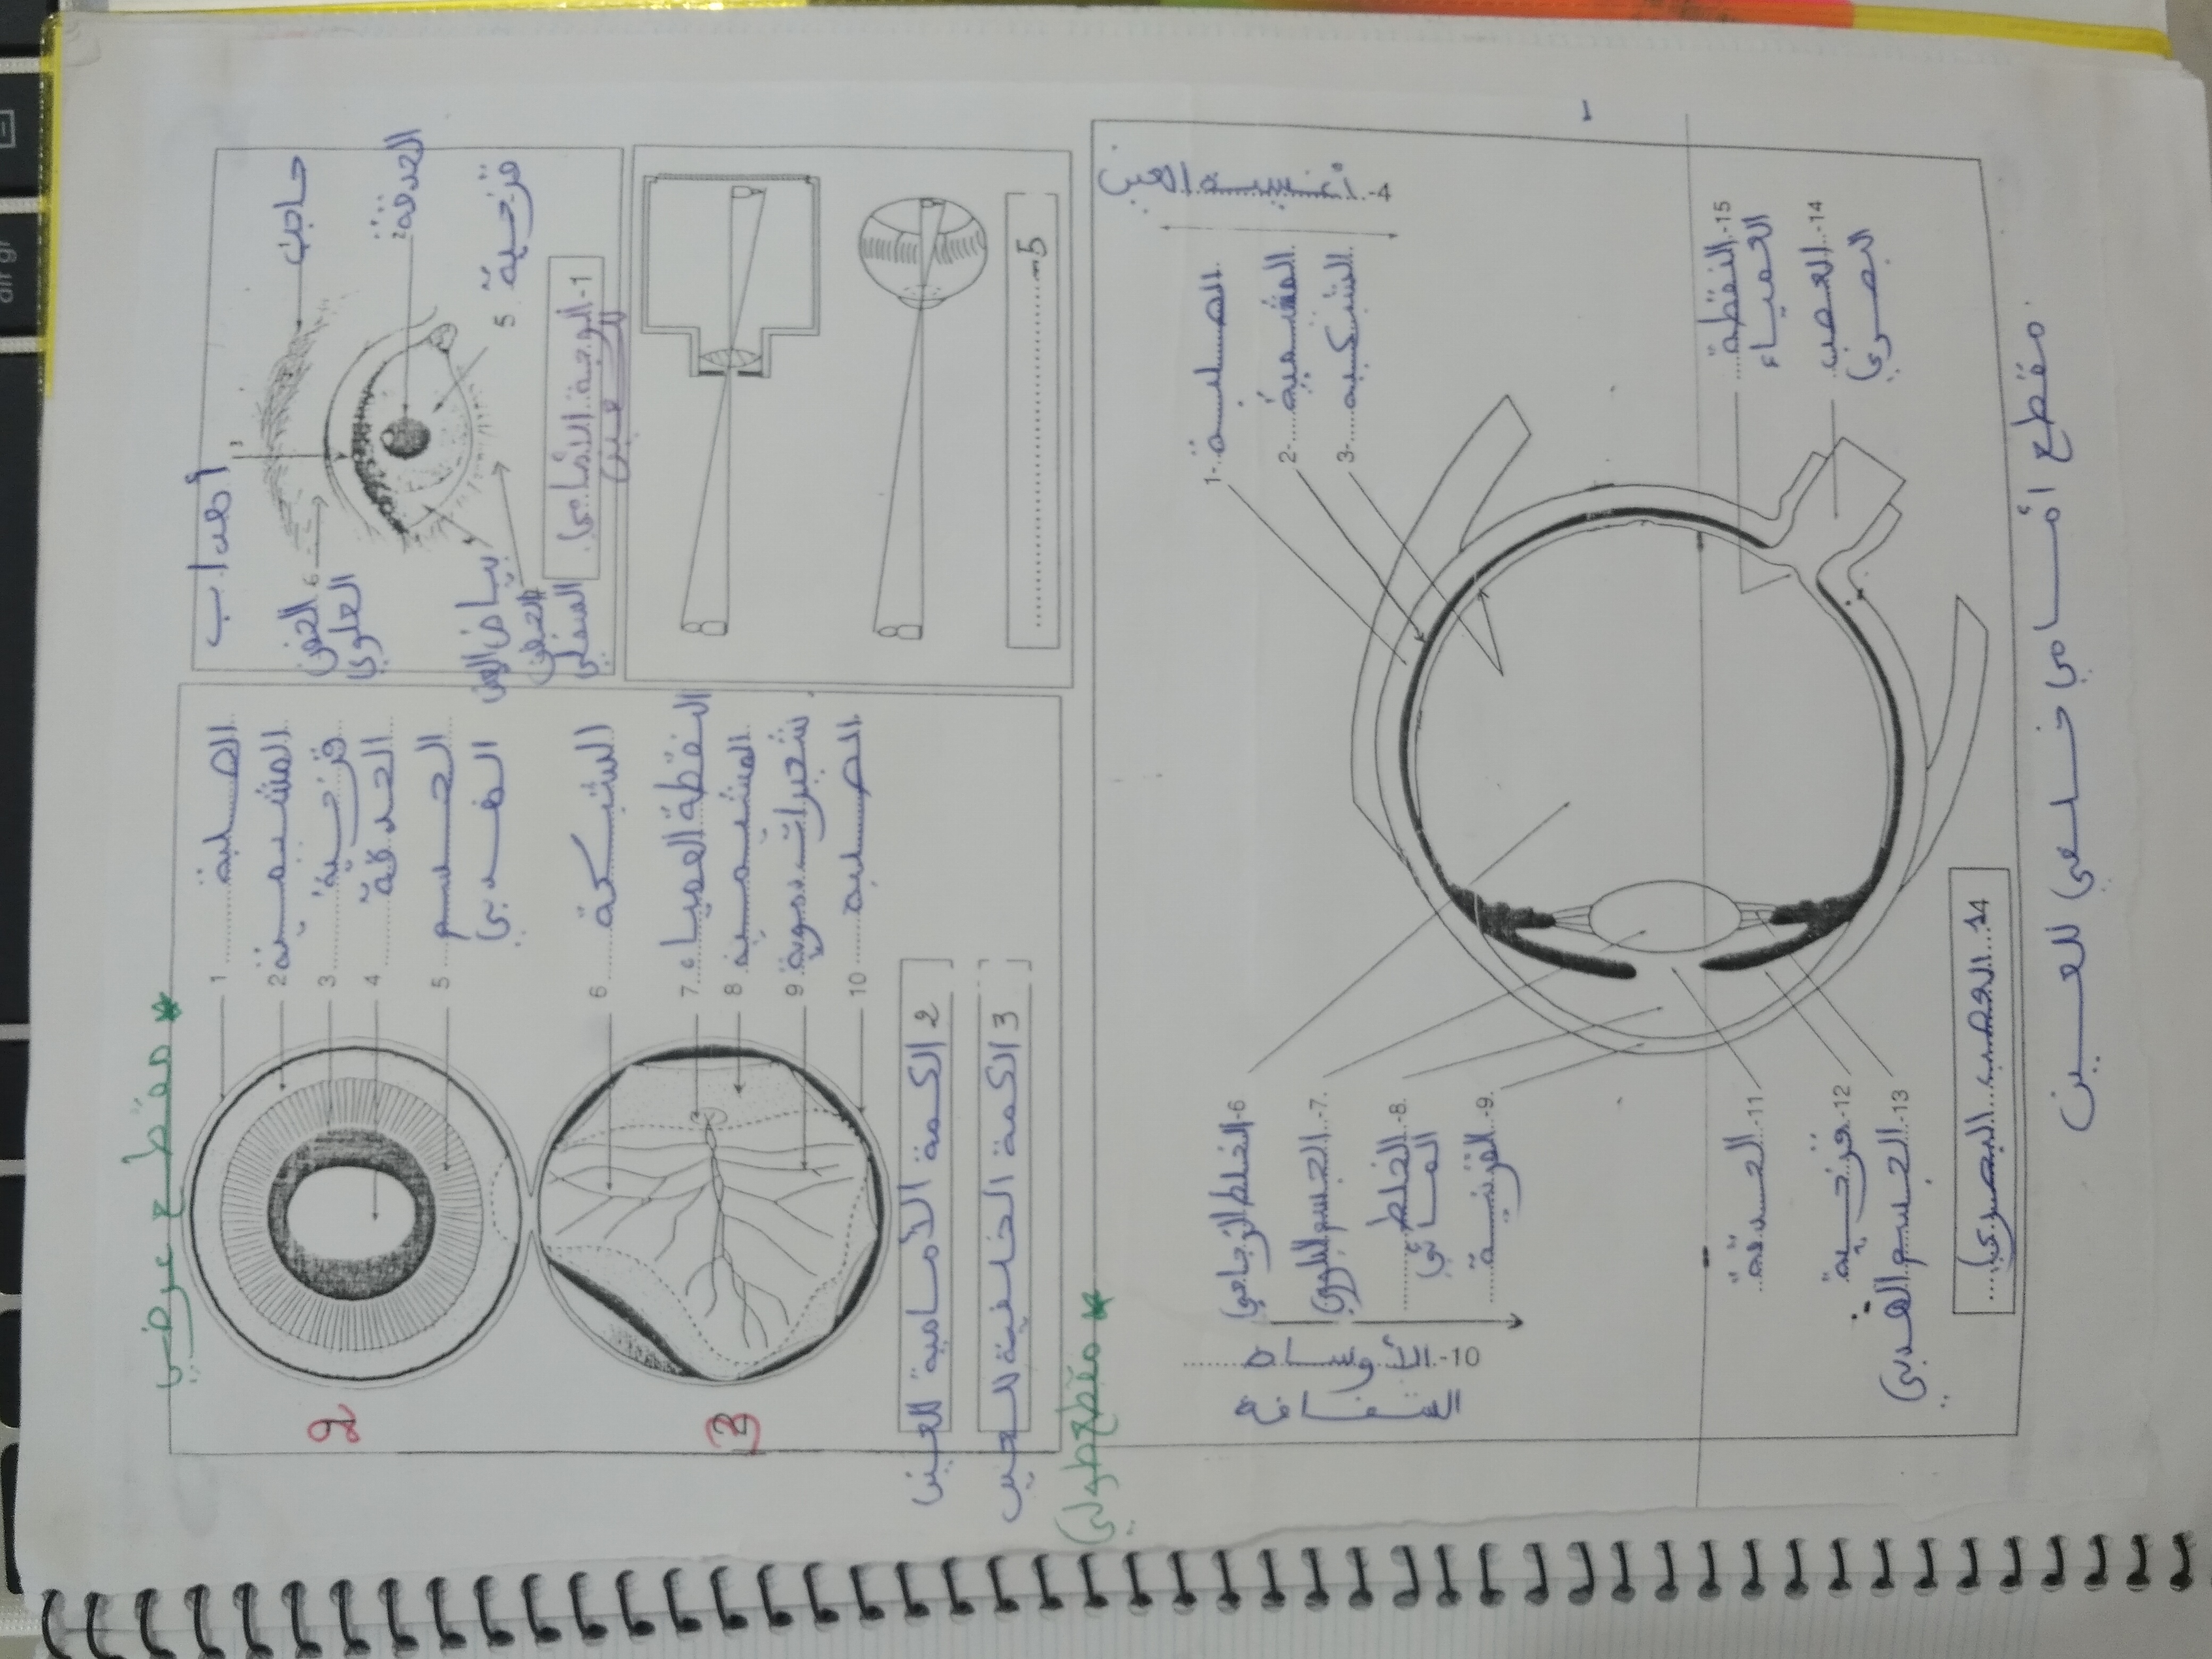 * مقطع عرضي
1 الصلبة
2 المشيمية
3 قزحية
4 الحدقة
5 الجسم
الهدبي
6 الشبكة
7 النقطة العمياء
8 المشيمية
9 شعيرات دموية
10 الصلبة
2
3
2 الكمة الأمامية للعين
3 الكمة الخلفية للعين
أهداب
حاجب
الحدقة
5 قزحية
6 الجفن
العلوي
بياض العين
الجفن
السفلي
1- الوجهة الأمامي
للعين
5-
* مقطع طولي
1- الصلبة
2- المشيمية
3- الشبكية
4- أغشية العين
6- الخلط الزجاجي
7- الجسم البلوري
8- الخلط
المائي
9- القرنية
10- الأوساط
الشفافة
11- الحدقة
12- قزحية
13- الجسم الهدبي
15- النقطة
العمياء
14- العصب
البصري
14 العصب البصري
مقطع أمامي خلفي للعين